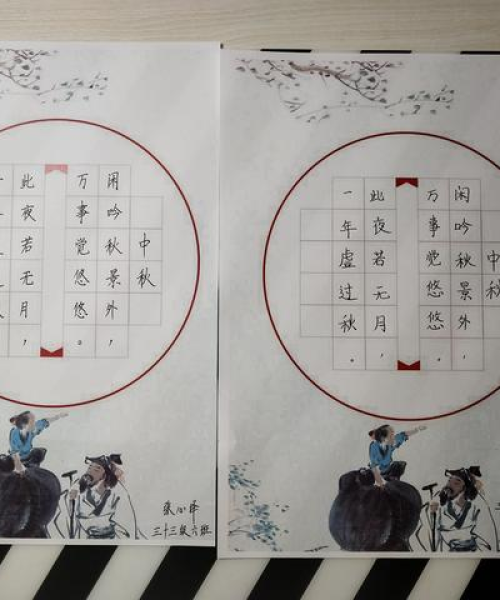 中秋
闲吟秋景外，
万事觉悠悠。
此夜若无月，
三十三级六班
中秋
闲吟秋景外，
万事觉悠悠。
此夜若无月，
一年虚过秋。